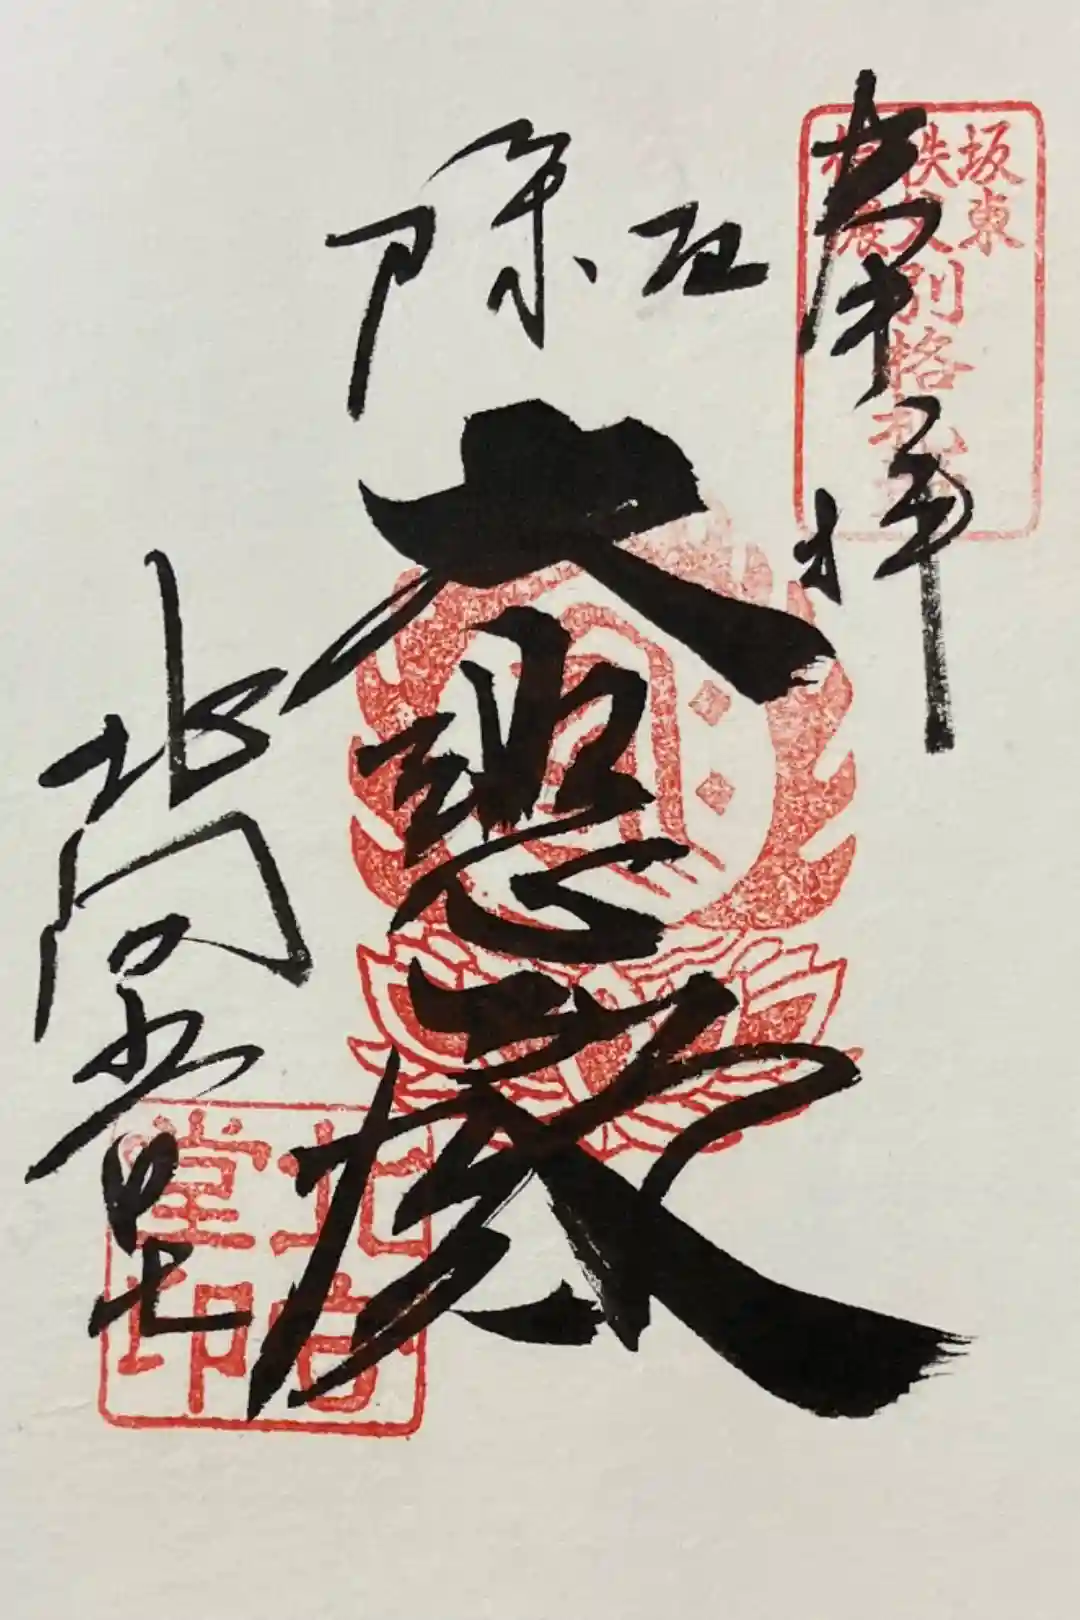 奉拝
坂東
秩父
別格札所
厄除
大悲殿
北向
北向
堂印